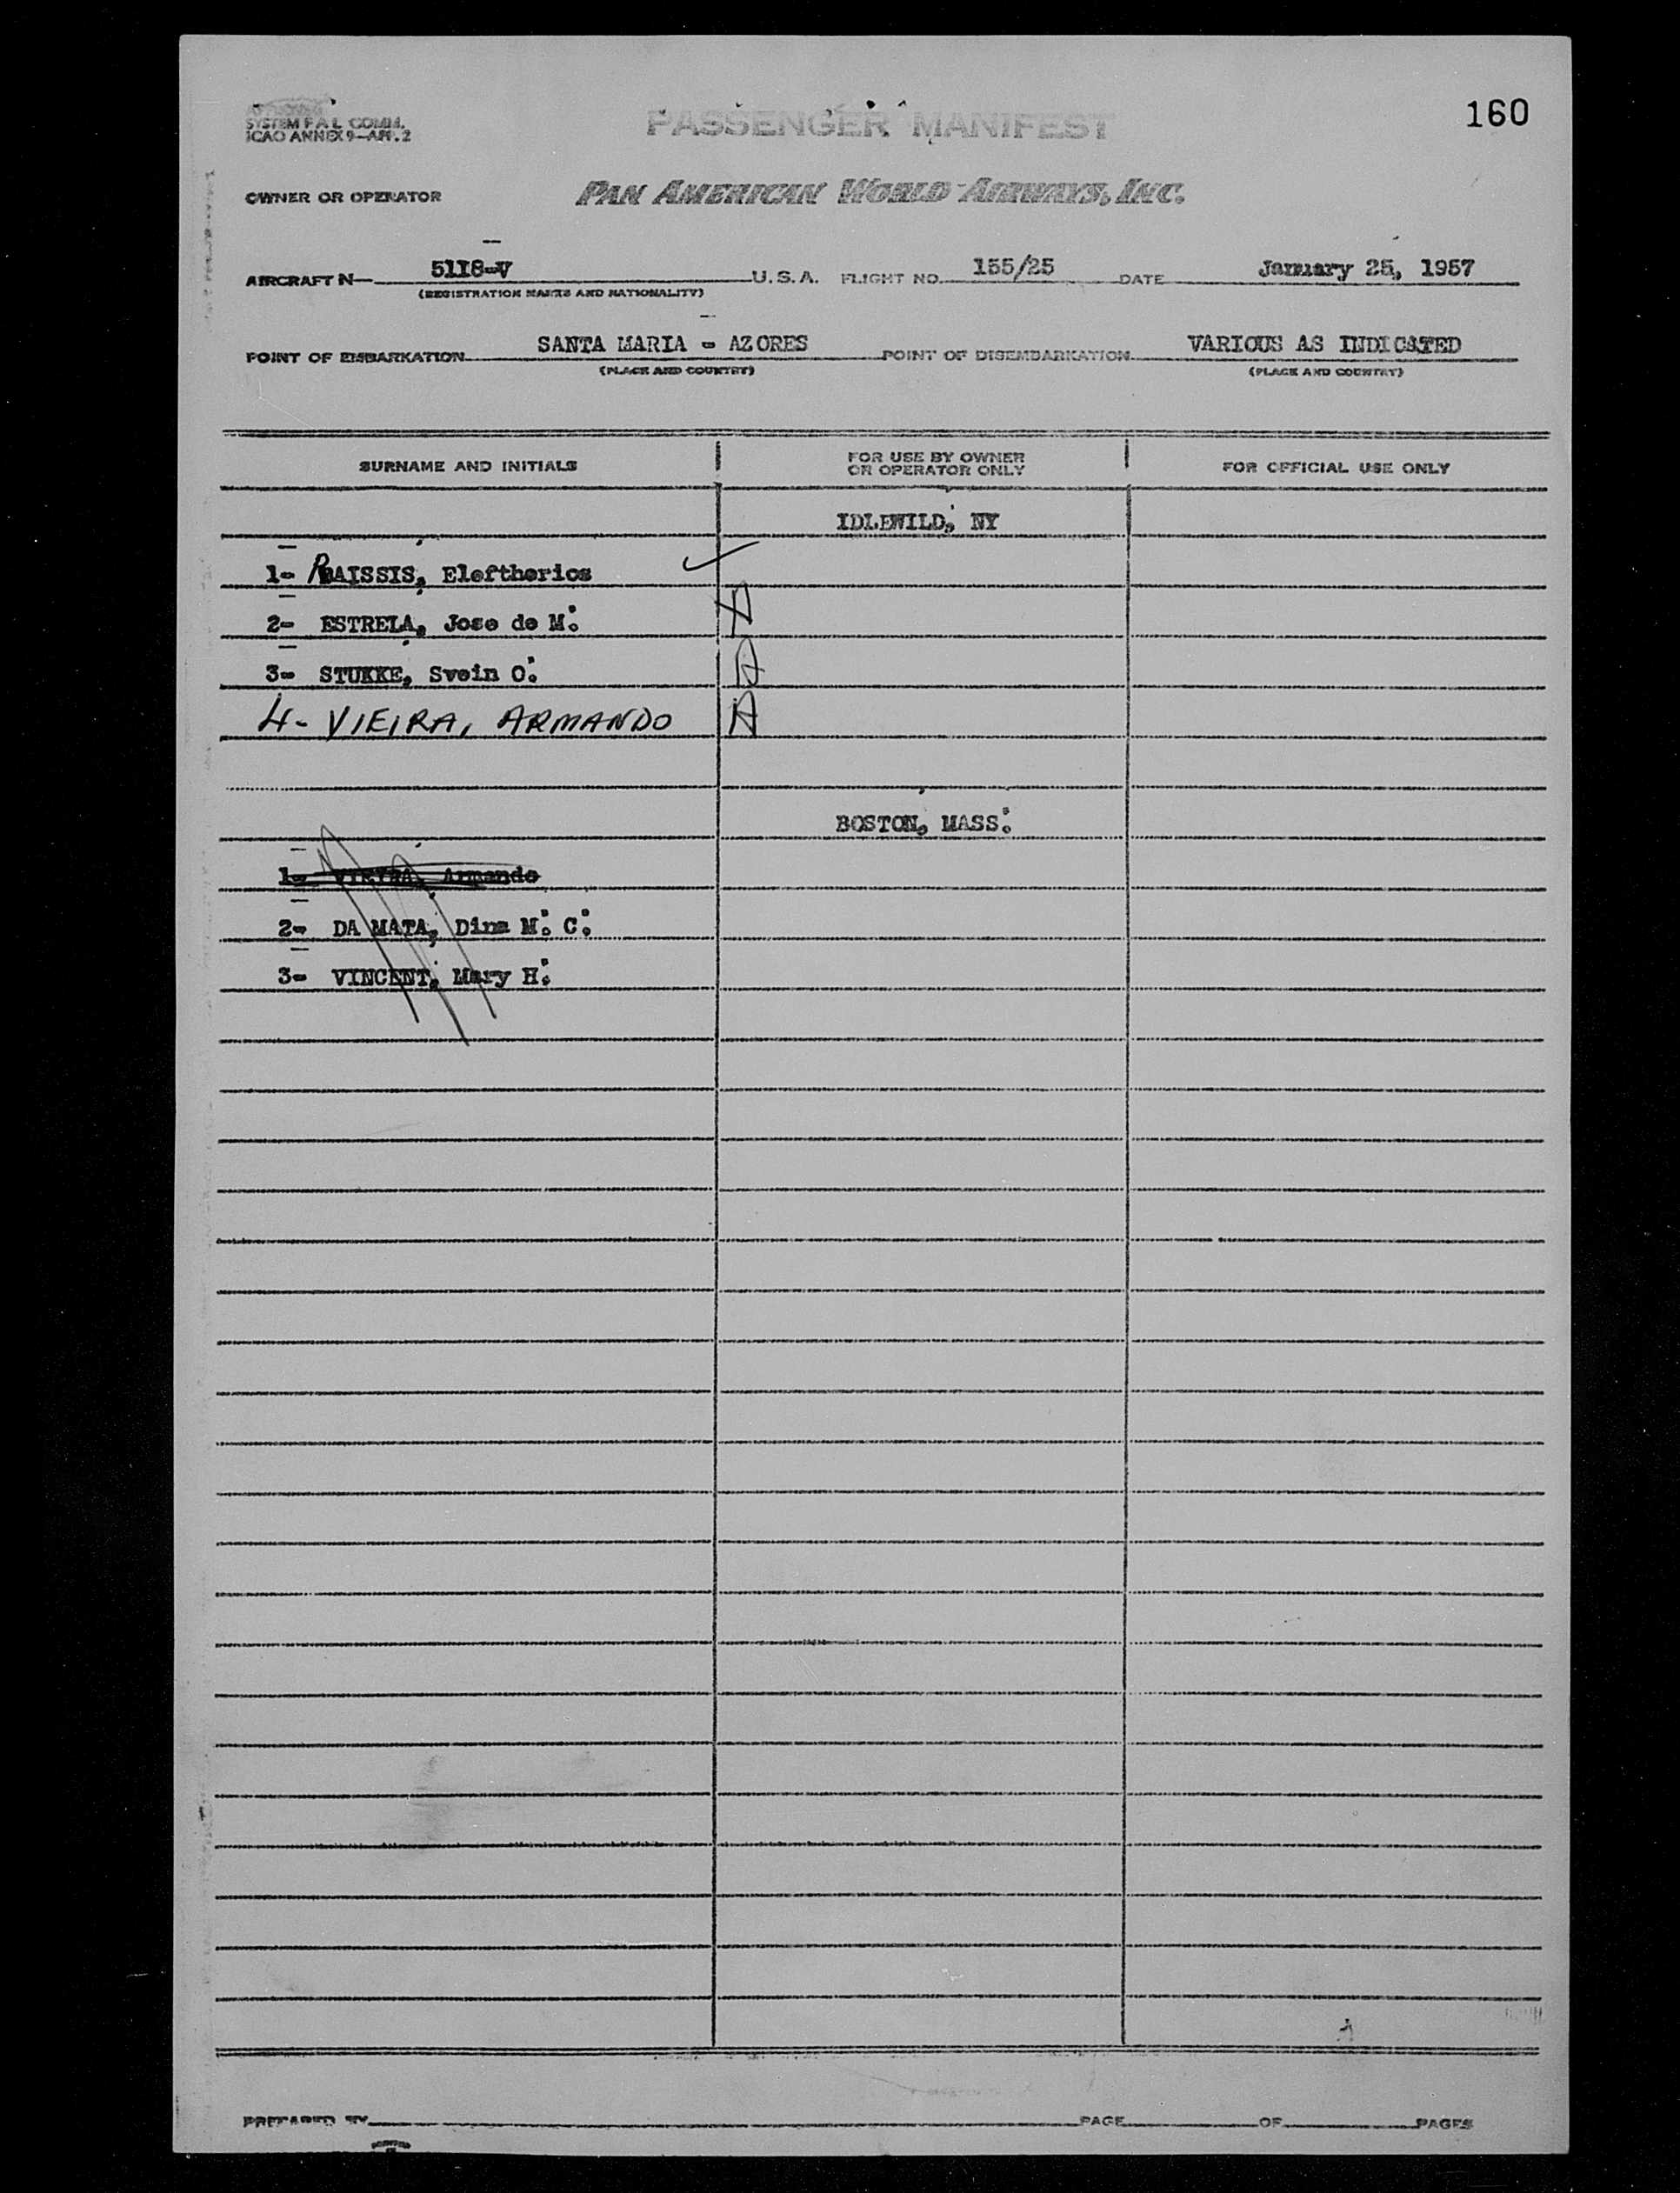 160
PASSENGER MANIFEST
SYSTEM F A L COMM.
ICAO ANNEX 9-APP. 2
OWNER OR OPERATOR PAN AMERICAN WORLD AIRWAYS, INC.
AIRCRAFT N- 5118-V U.S.A. FLIGHT NO. 155/25 DATE January 25, 1957
(REGISTRATION MARKS AND NATIONALITY)
POINT OF EMBARKATION SANTA MARIA - AZORES POINT OF DISEMBARKATION VARIOUS AS INDICATED
(PLACE AND COUNTRY) (PLACE AND COUNTRY)
SURNAME AND INITIALS FOR USE BY OWNER OR OPERATOR ONLY FOR OFFICIAL USE ONLY
IDLEWILD, NY
1- Eleftherios
2- ESTRELA, Jose de M. A
3- STUKKE, Svein O. A
4- VIEIRA, ARMANDO A
BOSTON, MASS.
1- VIEIRA, Armando
2- DA MATA, Dina M. C.
3- VINCENT, Mary H.
PREPARED BY PAGE OF PAGES